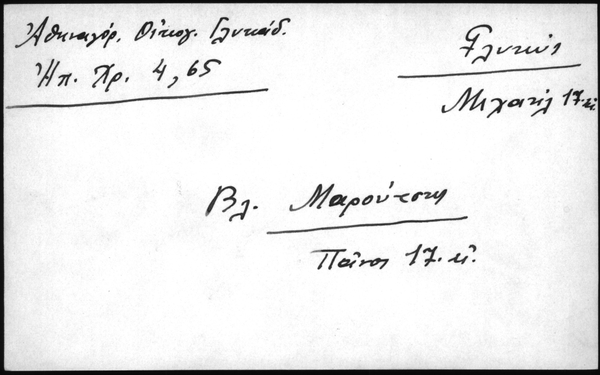 Ἀθηναγόρ. Οἰκογ. Γλυκάδ.
Ἠπ. Χρ. 4, 65
Γλυκύς
Μιχαήλ 17. αἰ.
Βλ. Μαρούτσης
Πάνος 17. αἰ.